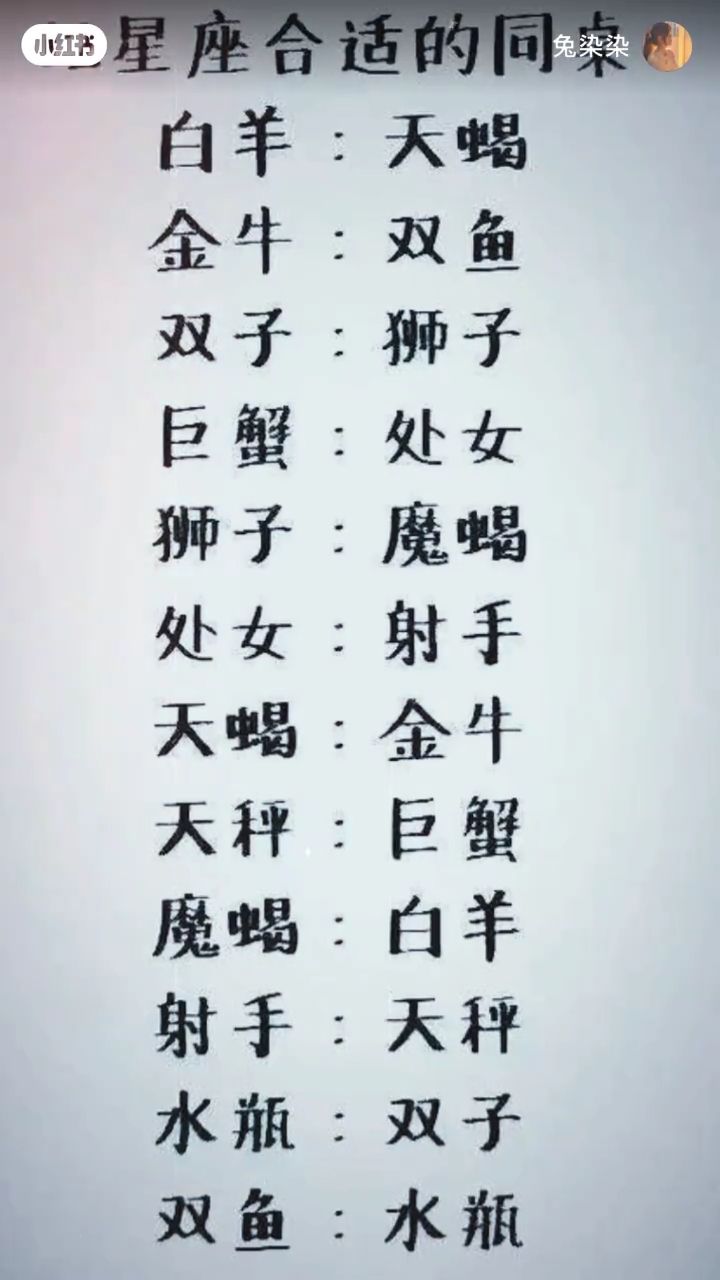 小红书
星座合适的同桌
兔染染
白羊：天蝎
金牛：双鱼
双子：狮子
巨蟹：处女
狮子：魔蝎
处女：射手
天蝎：金牛
天秤：巨蟹
魔蝎：白羊
射手：天秤
水瓶：双子
双鱼：水瓶